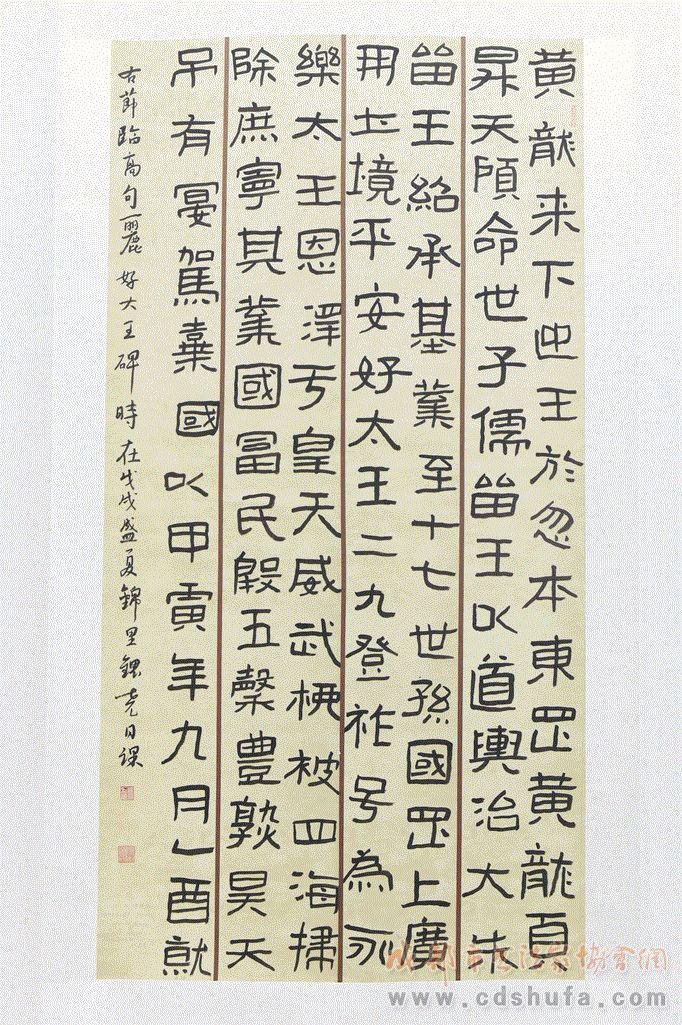 黄龍来下迊王於忽本東罡黄龍頁
昇天顧命世子儒留王以道輿治大朱
留王紹承基業至十七世孫國罡上廣
開土境平安好太王二九登祚号為永
樂太王恩澤于皇天威武柳被四海掃
除庶寧其業國富民殷五穀豊熟昊天
吊有宴駕棄國以甲寅年九月乙酉就
右節臨高句麗好大王碑時在戊戌盛夏錦里堯日課
成都市書法家協會網
www.cdshufa.com